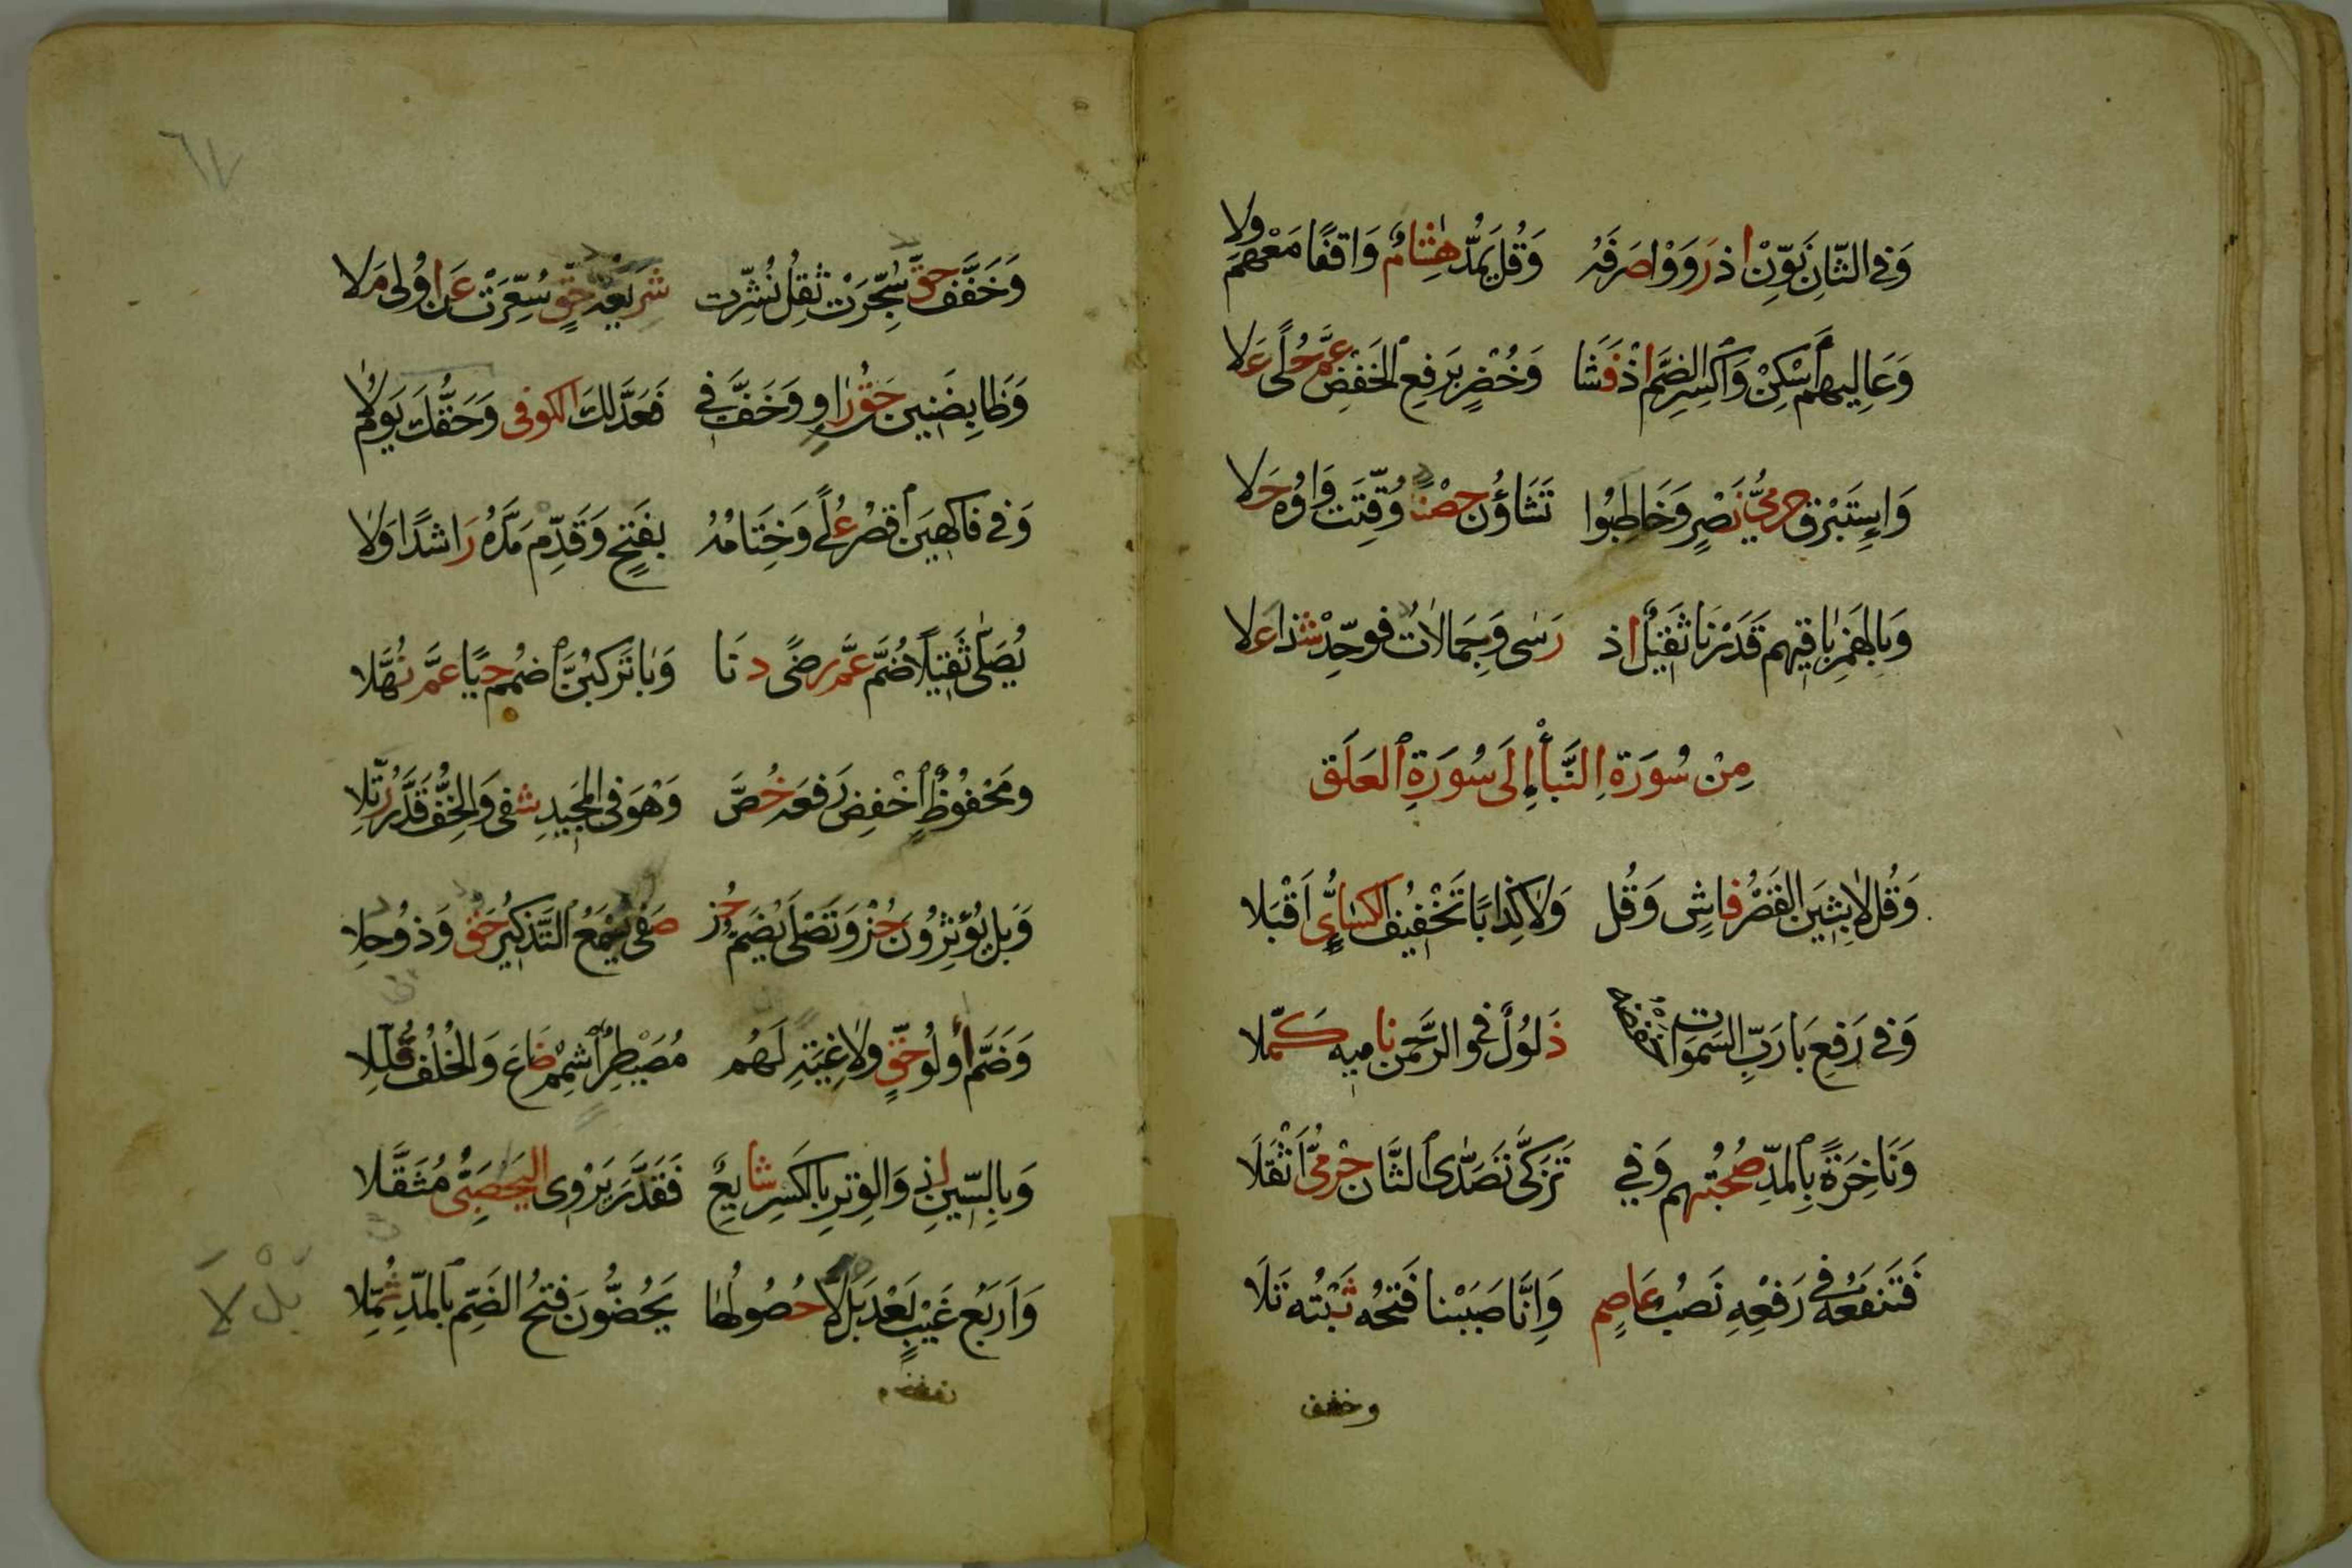 وَفِي الثَّانِ نَوِّنْ اذ رَوَوْا صَرفَهُ وَقُلْ يَمُدُّ هِشَامٌ وَاقفًا مَعْهُم وِلا
وَعَالِيهِم ٱسْكِنْ وَٱكْسِرِ الضَّم اذْ فَشَا وَخُضْرٌ بَرَفعِ الخَفْضِ عَمَّ حُلًى عَلا
وَاِسْتَبْرَق حِرمِيُّ نَصْرٍ وَخَاطِبُوا تَشَاؤُن حِصْنٌ وُقِّتَت وَاوُهُ حَلا
وَبِالهَمْزِ بَاقِيهِم قَدَرْنَا ثَقِيْلٌ اذ رَسٰى وَجِمَالَاتٌ فوحِّدْ شذا عَلا
مِنْ سُورَةِ النَّبأِ إِلَى سُورَةِ ٱلعَلَق
وَقُل لابِثِيَن القَصْرُ فاشٍ وَقُل وَلَا كِذابًا تَخْفِيْف الكِسَائِيِّ اَقْبَلا
وَفِي رَفعِ بَا رَبّ السَّموات خفضه ذَلوُلٌ في الرَّحْمٰن نامِيهِ كَمَّلا
وَنَاخِرَةً بِٱلمَدِّ صُحْبَتُهم وَفِي تَزَكَّى تَصَدّٰى ٱلثَّان حِرْمِيٌّ اَثْقَلَا
فَتَنفَعُهُ في رَفْعِهِ نَصبُ عَاصِمٍ وَاِنَّا صَبَبْنا فَتحُه ثَبْتُه تَلَا
وخفف
٦٧
وَخَفَّف حَقٌّ سُجِّرَتْ ثِقْلُ نُشِّرَت شَرِيعَةُ حَقٍّ سُعِّرَتْ عَن اوُلِى مَلا
وَظَا بِضَنِين حَقُّ رَاوٍ وَخَفَّ فِي فَعَدَّلَكَ الكوفي وَحَقُّكَ يَومُ لَا
وَفِي فَاكِهِينَ ٱقصُرْ عُلًى وَخِتَامُهُ بِفَتحٍ وَقَدِّم مَدَّهُ رَاشدًا وَلَا
يُصَلّٰى ثَقِيْلًا ضُمَّ عَمَّ رِضًى دنَا وَبَا تَرْكَبُنَّ ٱضمُم حَيًا عَمَّ نُهَّلا
ومَحْفُوظٌ ٱخْفِض رَفعَه خُصَّ وَهْوَ فِي المَجِيدِ شفى وَالخِفُّ قَدَّرَ رُتِّلا
وَبَل يُؤْثِرُون حُزْ وَتَصْلَى يُضَمُّ حُز صَفَى يُسْمَعُ ٱلتَّذكِيرُ حَقّ وَذُو حِلا
وَضَمَّ أُولُو حَقٍّ وَلَاغِيَةٌ لَهُم مُصَيْطِرٌ ٱشْمِمْ ضَاعَ وَالخُلْفُ قُلِّلا
وَبِالسِّينِ لذ وَالوِترِ بِالكَسرِ شَايِعٌ فَقَدَّرَ يَرْوِى اليَحصَبِيُّ مُثَقَّلا
وَاَربَعُ غَيْبٍ بَعْدَ بَل لَا حُصُولُهٰا يَحُضُّونَ فتحُ الضَّمِّ بٱلمَدّ ثُمِّلا
بَلْ لَا